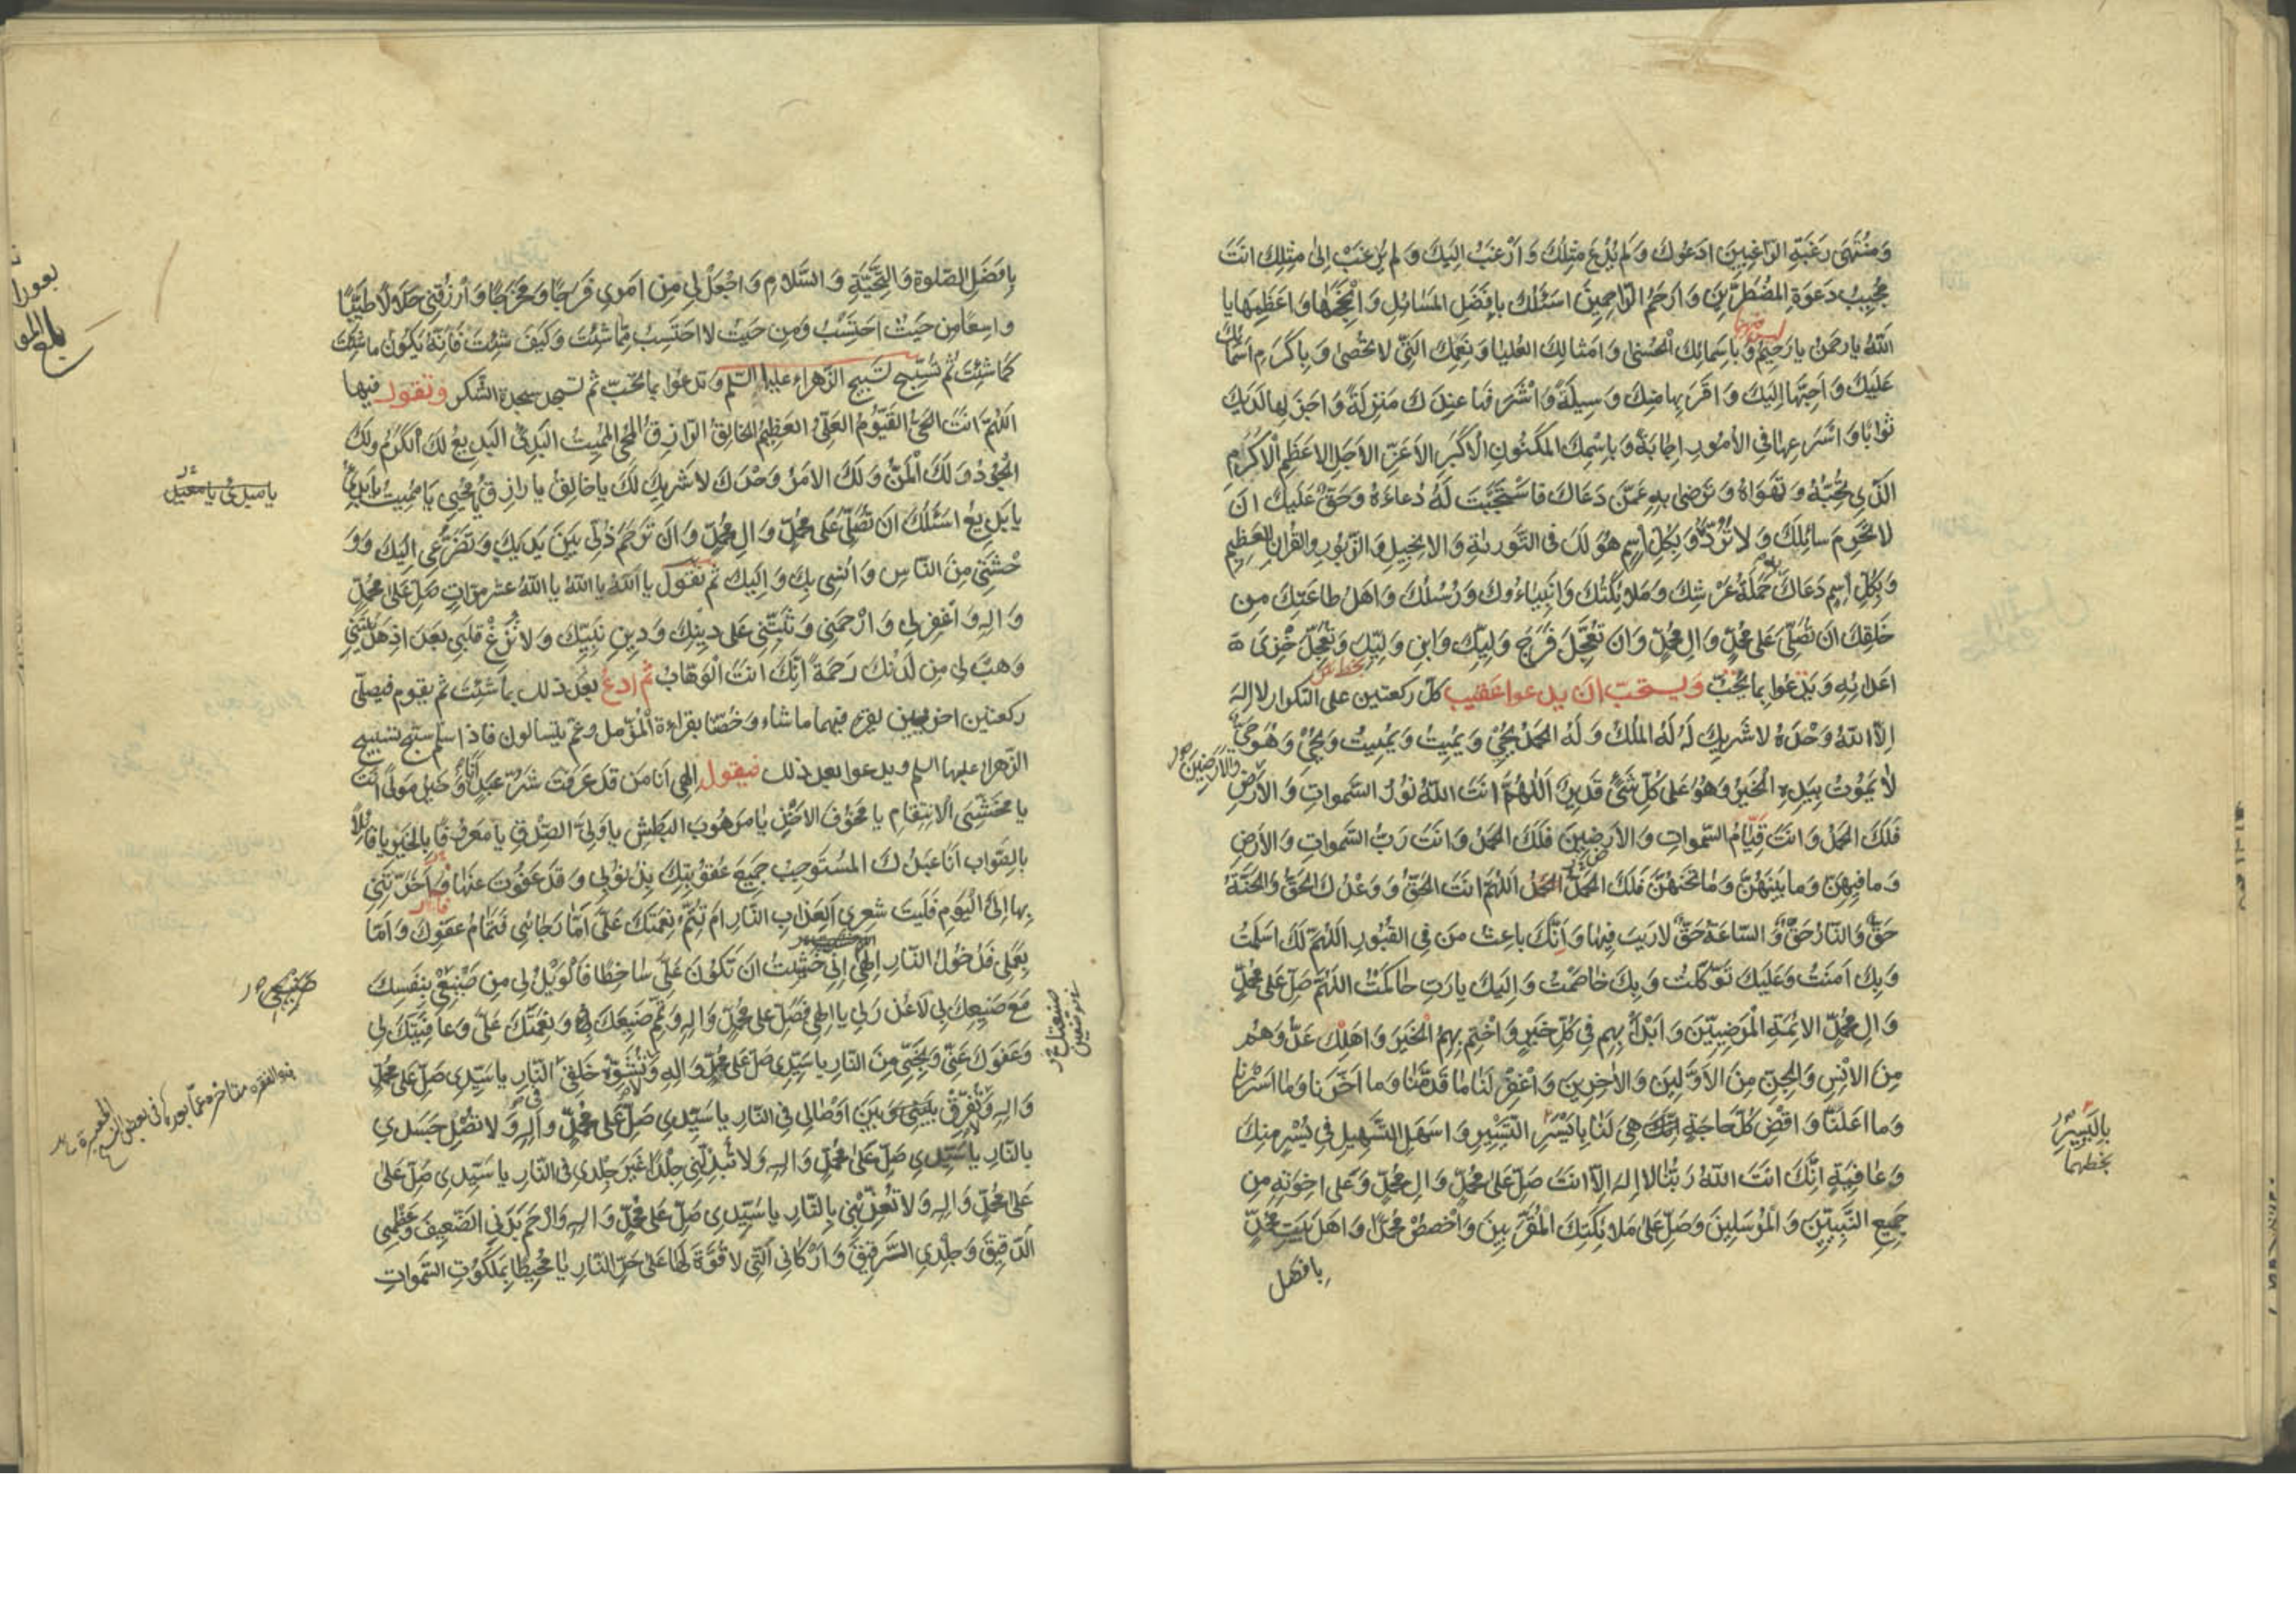 وَمُنْتَهَى رَغْبَةِ الرّاغِبينَ اَدْعُوكَ وَلَمْ يُدْعَ مِثْلُكَ وَاَرْغَبُ اِلَيْكَ وَلَمْ يُرْغَبْ اِلىٰ مِثْلِكَ اَنْتَ
مُجيبُ دَعْوَةِ المُضْطَرّينَ وَاَرْحَمُ الرّاحِمينَ اَسْئَلُكَ بِاَفْضَلِ المَسائِلِ وَاَنْجَحِها وَاَعْظَمِها يا
اَللهُ يا رَحْمنُ يا رَحيمُ وَبِاَسْمائِكَ الْحُسْنىٰ وَاَمْثالِكَ العُلْيا وَنِعَمِكَ الَّتي لا تُحْصىٰ وَبِاَكْرَمِ اَسْمائِكَ
عَلَيْكَ وَاَحَبِّها اِلَيْكَ وَاَقْرَبِها مِنْكَ وَسيلَةً وَاَشْرَفِها عِنْدَكَ مَنْزِلَةً وَاَجْزَلِها لَدَيْكَ
ثَوابًا وَاَسْرَعِها فِي الاُمُورِ اِجابَةً وَبِاسْمِكَ المَكْنُونِ الْاَكْبَرِ الاَعَزِّ الاَجَلِّ الاَعْظَمِ الْاَكْرَمِ
الَّذي تُحِبُّهُ وَتَهْواهُ وَتَرْضىٰ بِهِ عَمَّنْ دَعاكَ فَاسْتَجَبْتَ لَهُ دُعاءَهُ وَحَقٌّ عَلَيْكَ اَنْ
لا تَحْرِمَ سائِلَكَ وَلا تَرُدَّهُ وَبِكُلِّ اسْمٍ هُوَ لَكَ فِى التَّوْرىٰةِ وَالاِنْجيلِ وَالزَّبُورِ وَالْقُرْانِ العَظيمِ
وَبِكُلِّ اسْمٍ دَعاكَ حَمَلَةُ عَرْشِكَ وَمَلائِكَتُكَ وَاَنْبِياءُوكَ وَرُسُلُكَ وَاَهْلُ طاعَتِكَ مِنْ
خَلْقِكَ اَنْ تُصَلِّيَ عَلىٰ مُحَمَّدٍ وَالِ مُحَمَّدٍ وَاَنْ تُعَجِّلَ فَرَجَ وَلِيِّكَ وَابْنِ وَلِيِّكَ وَتُعَجِّلَ خِزْىَ
اَعْدائِهِ وَيَدْعُوا بِما يُحِبُّ وَيستحبّ اَن يدعوا عَقيب كلّ ركعتين على التكرار لا اِلهَ
اِلاَّ اللهُ وَحْدَهُ لا شَريكَ لَهُ لَهُ المُلْكُ وَلَهُ الحَمْدُ يُحْيي وَيُميتُ وَيُميتُ وَيُحْيي وَهُوَ حَيٌّ
لا يَمُوتُ بِيَدِهِ الْخَيْرُ وَهُوَ عَلىٰ كُلِّ شَيْءٍ قَديرٌ اَللّٰهُمَّ اَنْتَ اللهُ نُورُ السَّمواتِ وَالاَرْضِ
والاَرَضينَ
فَلَكَ الحَمْدُ وَاَنْتَ قِيّامُ السَّمواتِ وَالاَرَضينَ فَلَكَ الحَمْدُ وَاَنْتَ رَبُّ السَّمواتِ وَالاَرْضِ
وَما فيهِنَّ وَما بَيْنَهُنَّ وَما تَحْتَهُنَّ فَلَكَ الحَمْدُ اَللّهُمَّ اَنْتَ الحَقُّ وَوَعْدُكَ الحَقُّ وَالْجَنَّةُ
حَقٌّ وَالنّارُ حَقٌّ وَالسّاعَةُ حَقٌّ لا رَيْبَ فيها وَاَنَّكَ باعِثُ مَنْ فِي القُبُورِ اَللّهُمَّ لَكَ اَسْلَمْتُ
وَبِكَ امَنْتُ وَعَلَيْكَ تَوَكَّلْتُ وَبِكَ خاصَمْتُ وَاِلَيْكَ يا رَبِّ حاكَمْتُ اَللّهُمَّ صَلِّ عَلىٰ مُحَمَّدٍ
وَالِ مُحَمَّدٍ الاَئِمَّةِ الْمَرْضِيّينَ وَابْدَأْ بِهِمْ في كُلِّ خَيْرٍ وَاخْتِمْ بِهِمُ الْخَيْرَ وَاَهْلِكْ عَدُوَّهُمْ
مِنَ الاِنْسِ وَالْجِنِّ مِنَ الاَوَّلينَ وَالاٰخِرينَ وَاغْفِرْ لَنا ما قَدَّمْنا وَما اَخَّرْنا وَما اَسْرَرْنا
وَما اَعْلَنّا وَاقْضِ كُلَّ حاجَةٍ هِيَ لَنا بِاَيْسَرِ التَّيْسيرِ وَاَسْهَلِ التَّسْهيلِ في يُسْرٍ مِنْكَ
بِاليَسيرِ
بخطهما
وَعافِيَةٍ اِنَّكَ اَنْتَ اللهُ رَبُّنا لا اِلهَ اِلاّ اَنْتَ صَلِّ عَلىٰ مُحَمَّدٍ وَالِ مُحَمَّدٍ وَعَلىٰ اِخْوَتِهِ مِنْ
جَميعِ النَّبِيّينَ وَالْمُرْسَلينَ وَصَلِّ عَلىٰ مَلائِكَتِكَ الْمُقَرَّبينَ وَاخْصُصْ مُحَمَّدًا وَاَهْلَ بَيْتِ مُحَمَّدٍ
بافضل
بِاَفْضَلِ الصَّلوةِ وَالتَّحِيَّةِ وَالسَّلامِ وَاجْعَلْ لي مِنْ اَمْري فَرَجًا وَمَخْرَجًا وَارْزُقْني حَلالاً طَيِّبًا
واسِعًا مِنْ حَيْثُ اَحْتَسِبُ وَمِنْ حَيْثُ لا اَحْتَسِبُ مِمّا شِئْتَ وَكَيْفَ شِئْتَ فَاِنَّهُ يَكُونُ ما شِئْتَ
كَما شِئْتَ ثُمَّ تُسَبِّحُ تَسبيح الزّهراء عليها السّلم وتدعُوا بما تحبّ ثم تسجد سجدة الشّكر وتقول فيها
اَللّهُمَّ اَنْتَ الحَيُّ القَيُّومُ العَلِيُّ العَظيمُ الخالِقُ الرّازِقُ المُحْيي المُميتُ البَدِيءُ البَديعُ لَكَ الْكَرَمُ وَلَكَ
الْجُودُ وَلَكَ الْمَنُّ وَلَكَ الاَمْرُ وَحْدَكَ لا شَريكَ لَكَ يا خالِقُ يا رازِقُ يا مُحْيي يا مُميتُ يا بَدِيءُ
يا بَديعُ اَسْئَلُكَ اَنْ تُصَلِّيَ عَلىٰ مُحَمَّدٍ وَالِ مُحَمَّدٍ وَاَنْ تَرْحَمَ ذُلّي بَيْنَ يَدَيْكَ وَتَضَرُّعي اِلَيْكَ وَوَ
حْشَتي مِنَ النّاسِ وَاُنْسي بِكَ وَاِلَيْكَ ثم تقول يا اَللهُ يا اَللهُ يا اَللهُ عشر مرّاتٍ صَلِّ عَلىٰ مُحَمَّدٍ
وَالِهِ وَاغْفِرْ لي وَارْحَمْني وَثَبِّتْني عَلىٰ دينِكَ وَدينِ نَبِيِّكَ وَلا تُزِغْ قَلْبي بَعْدَ اِذْ هَدَيْتَني
وَهَبْ لي مِنْ لَدُنْكَ رَحْمَةً اِنَّكَ اَنْتَ الْوَهّابُ ثم ادعُ بعد ذلك بما شئت ثم يقوم فيصلّى
ركعتين اخريين يقرء فيهما ما شاء وخُصّتا بقراءة الْمُزّمل وعمّ يتسالون فاذا سلّم سبّح تسبيح
الزّهراء عليها السلم ويدعوا بعد ذلك فيقول اِلهي اَنا مَنْ قَدْ عَرَفْتَ شَرُّ عَبْدٍ اَنَا وَخَيْرُ مَوْلىً اَنْتَ
يا مَخْشِيَّ الْاِنْتِقامِ يا مَخُوفَ الاَخْذِ يا مَرْهُوبَ البَطْشِ يا وَلِيَّ الصِّدْقِ يا مَعْرُوفًا بِالخَيْرِ يا قائِلاً
بِالصَّوابِ اَنَا عَبْدُكَ المُسْتَوْجِبُ جَميعَ عُقُوبَتِكَ بِذُنُوبي وَقَدْ عَفَوْتَ عَنْها وَاَخَّرْتَني
بِها اِلَى الْيَوْمِ فَلَيْتَ شِعْري اَلِعَذابِ النّارِ اَمْ تُتِمُّ نِعْمَتَكَ عَلَيَّ اَمّا رَجائي فَتَمامُ عَفْوِكَ وَاَمّا
بِعَمَلي فَدُخُولُ النّارِ اِلهي اِنّي خَشيتُ اَنْ تَكُونَ عَلَيَّ ساخِطًا فَالْوَيْلُ لي مِنْ صَنيعي بِنَفْسِكَ
مَعَ صَنيعِكَ بي لا عُذْرَ لي يا اِلهي فَصَلِّ عَلىٰ مُحَمَّدٍ وَالِهِ وَتَمِّمْ صَنيعَكَ بي وَنِعْمَتَكَ عَلَيَّ وَعافِيَتَكَ لي
وَعَفْوَكَ عَنّي وَنَجِّني مِنَ النّارِ يا سَيِّدي صَلِّ عَلىٰ مُحَمَّدٍ وَالِهِ وَلا تُشَوِّهْ خَلْقي فِي النّارِ يا سَيِّدي صَلِّ عَلىٰ مُحَمَّدٍ
وَالِهِ وَلا تُفَرِّقْ بَيْني وَبَيْنَ اَوْصالي فِي النّارِ يا سَيِّدي صَلِّ عَلىٰ مُحَمَّدٍ وَالِهِ وَلا تُصْلِ جَسَدي
بِالنّارِ يا سَيِّدي صَلِّ عَلىٰ مُحَمَّدٍ وَالِهِ وَلا تُبَدِّلْني جِلْدًا غَيْرَ جِلْدي فِي النّارِ يا سَيِّدي صَلِّ عَلىٰ
عَلىٰ مُحَمَّدٍ وَالِهِ وَلا تُعَذِّبْني بِالنّارِ يا سَيِّدي صَلِّ عَلىٰ مُحَمَّدٍ وَالِهِ وَارْحَمْ بَدَنِي الضَّعيفَ وَعَظْمِي
الدَّقيقَ وَجِلْدِي الرَّقيقَ وَاَرْكانِي الَّتي لا قُوَّةَ لَها عَلىٰ حَرِّ النّارِ يا مُحيطًا بِمَلَكُوتِ السَّمواتِ